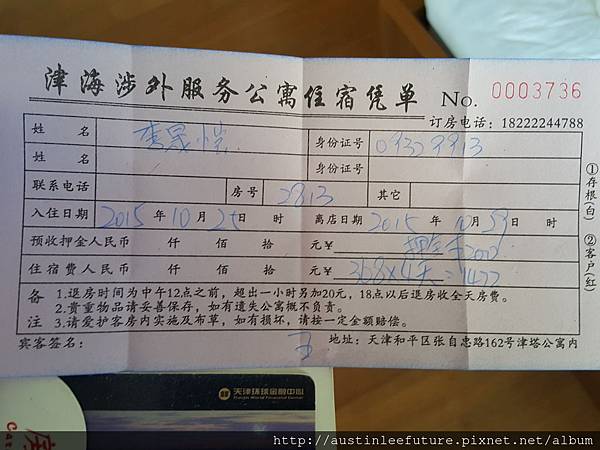 津海涉外服务公寓住宿凭单 No. 0003736
订房电话：18222244788
姓 名 李晟愷 身份证号
姓 名 身份证号
联系电话 房号 2813 其它
入住日期 2015 年 10 月 25 日 时 离店日期 2015 年 10 月 29 日 时
预收押金人民币 仟 佰 拾 元¥ 押金
住宿费人民币 仟 佰 拾 元¥ 368×4天=1472
备注 1.退房时间为中午12点之前，超出一小时另加20元，18点以后退房收全天房费。
2.贵重物品请妥善保存，如有遗失公寓概不负责。
3.请爱护客房内实施及布草，如有损坏，请按一定金额赔偿。
宾客签名： 地址：天津和平区张自忠路162号津塔公寓内
①存根(白) ②客户(红)
天津环球金融中心
Tianjin World Financial Center
http://austinleefuture.pixnet.net/album